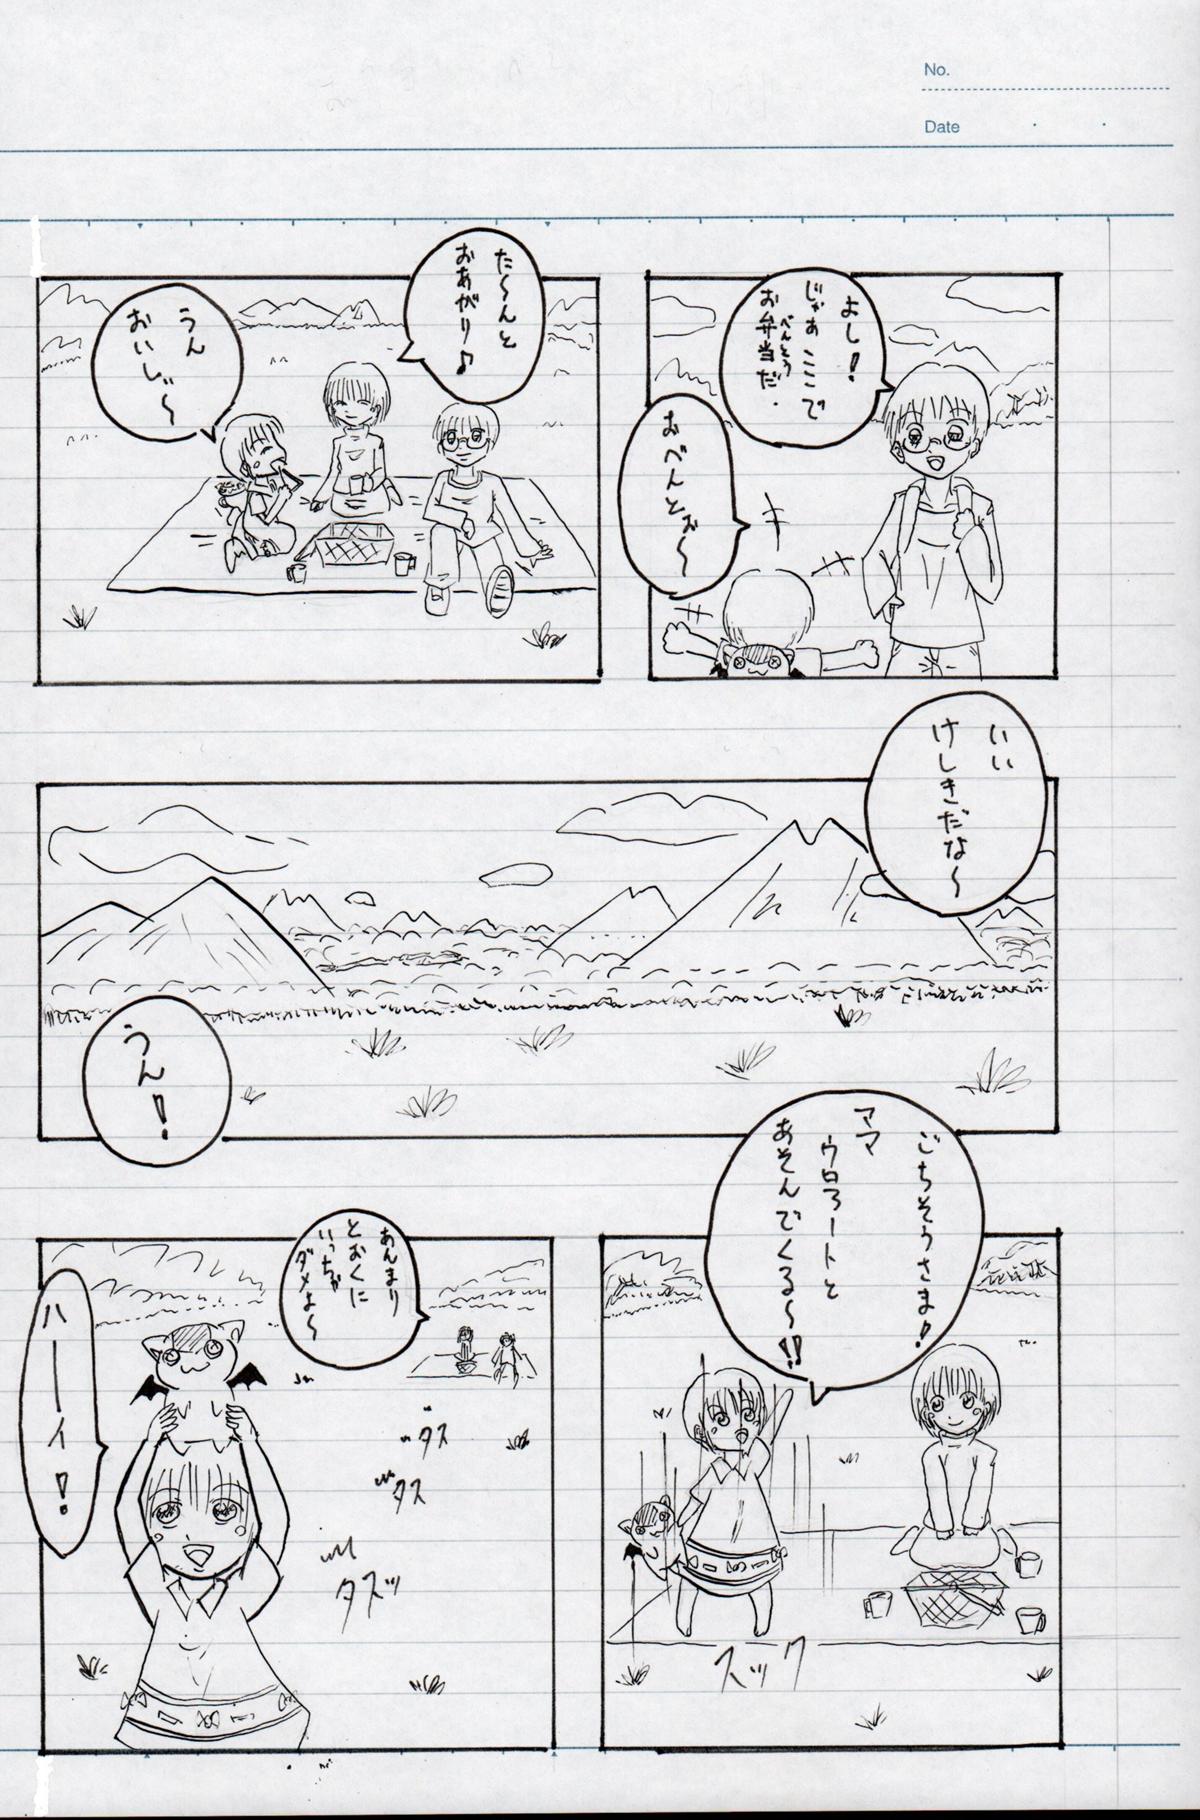 No.
Date
よし!
じゃあ ここで
お弁当だ
べんとう
おべんとぉ〜
た〜んと
おあがり♪
うん
おいしい〜
いい
けしきだな〜
うん!
ごちそうさま!
ママ
ウロアートと
あそんでくる〜!!
スック
あんまり
とおくに
いっちゃ
ダメよ〜
タス
タス
タスッ
ハーーイ!